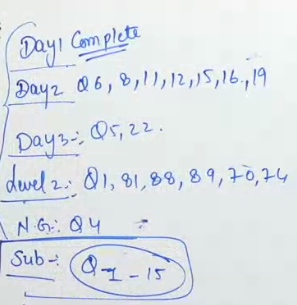 Day1 Complete
Day2 Q6, 8, 11, 12, 15, 16, 19
Day3-: Q5, 22.
Level 2: Q1, 81, 88, 89, 70, 74
N.G: Q4
Sub-: Q 1-15